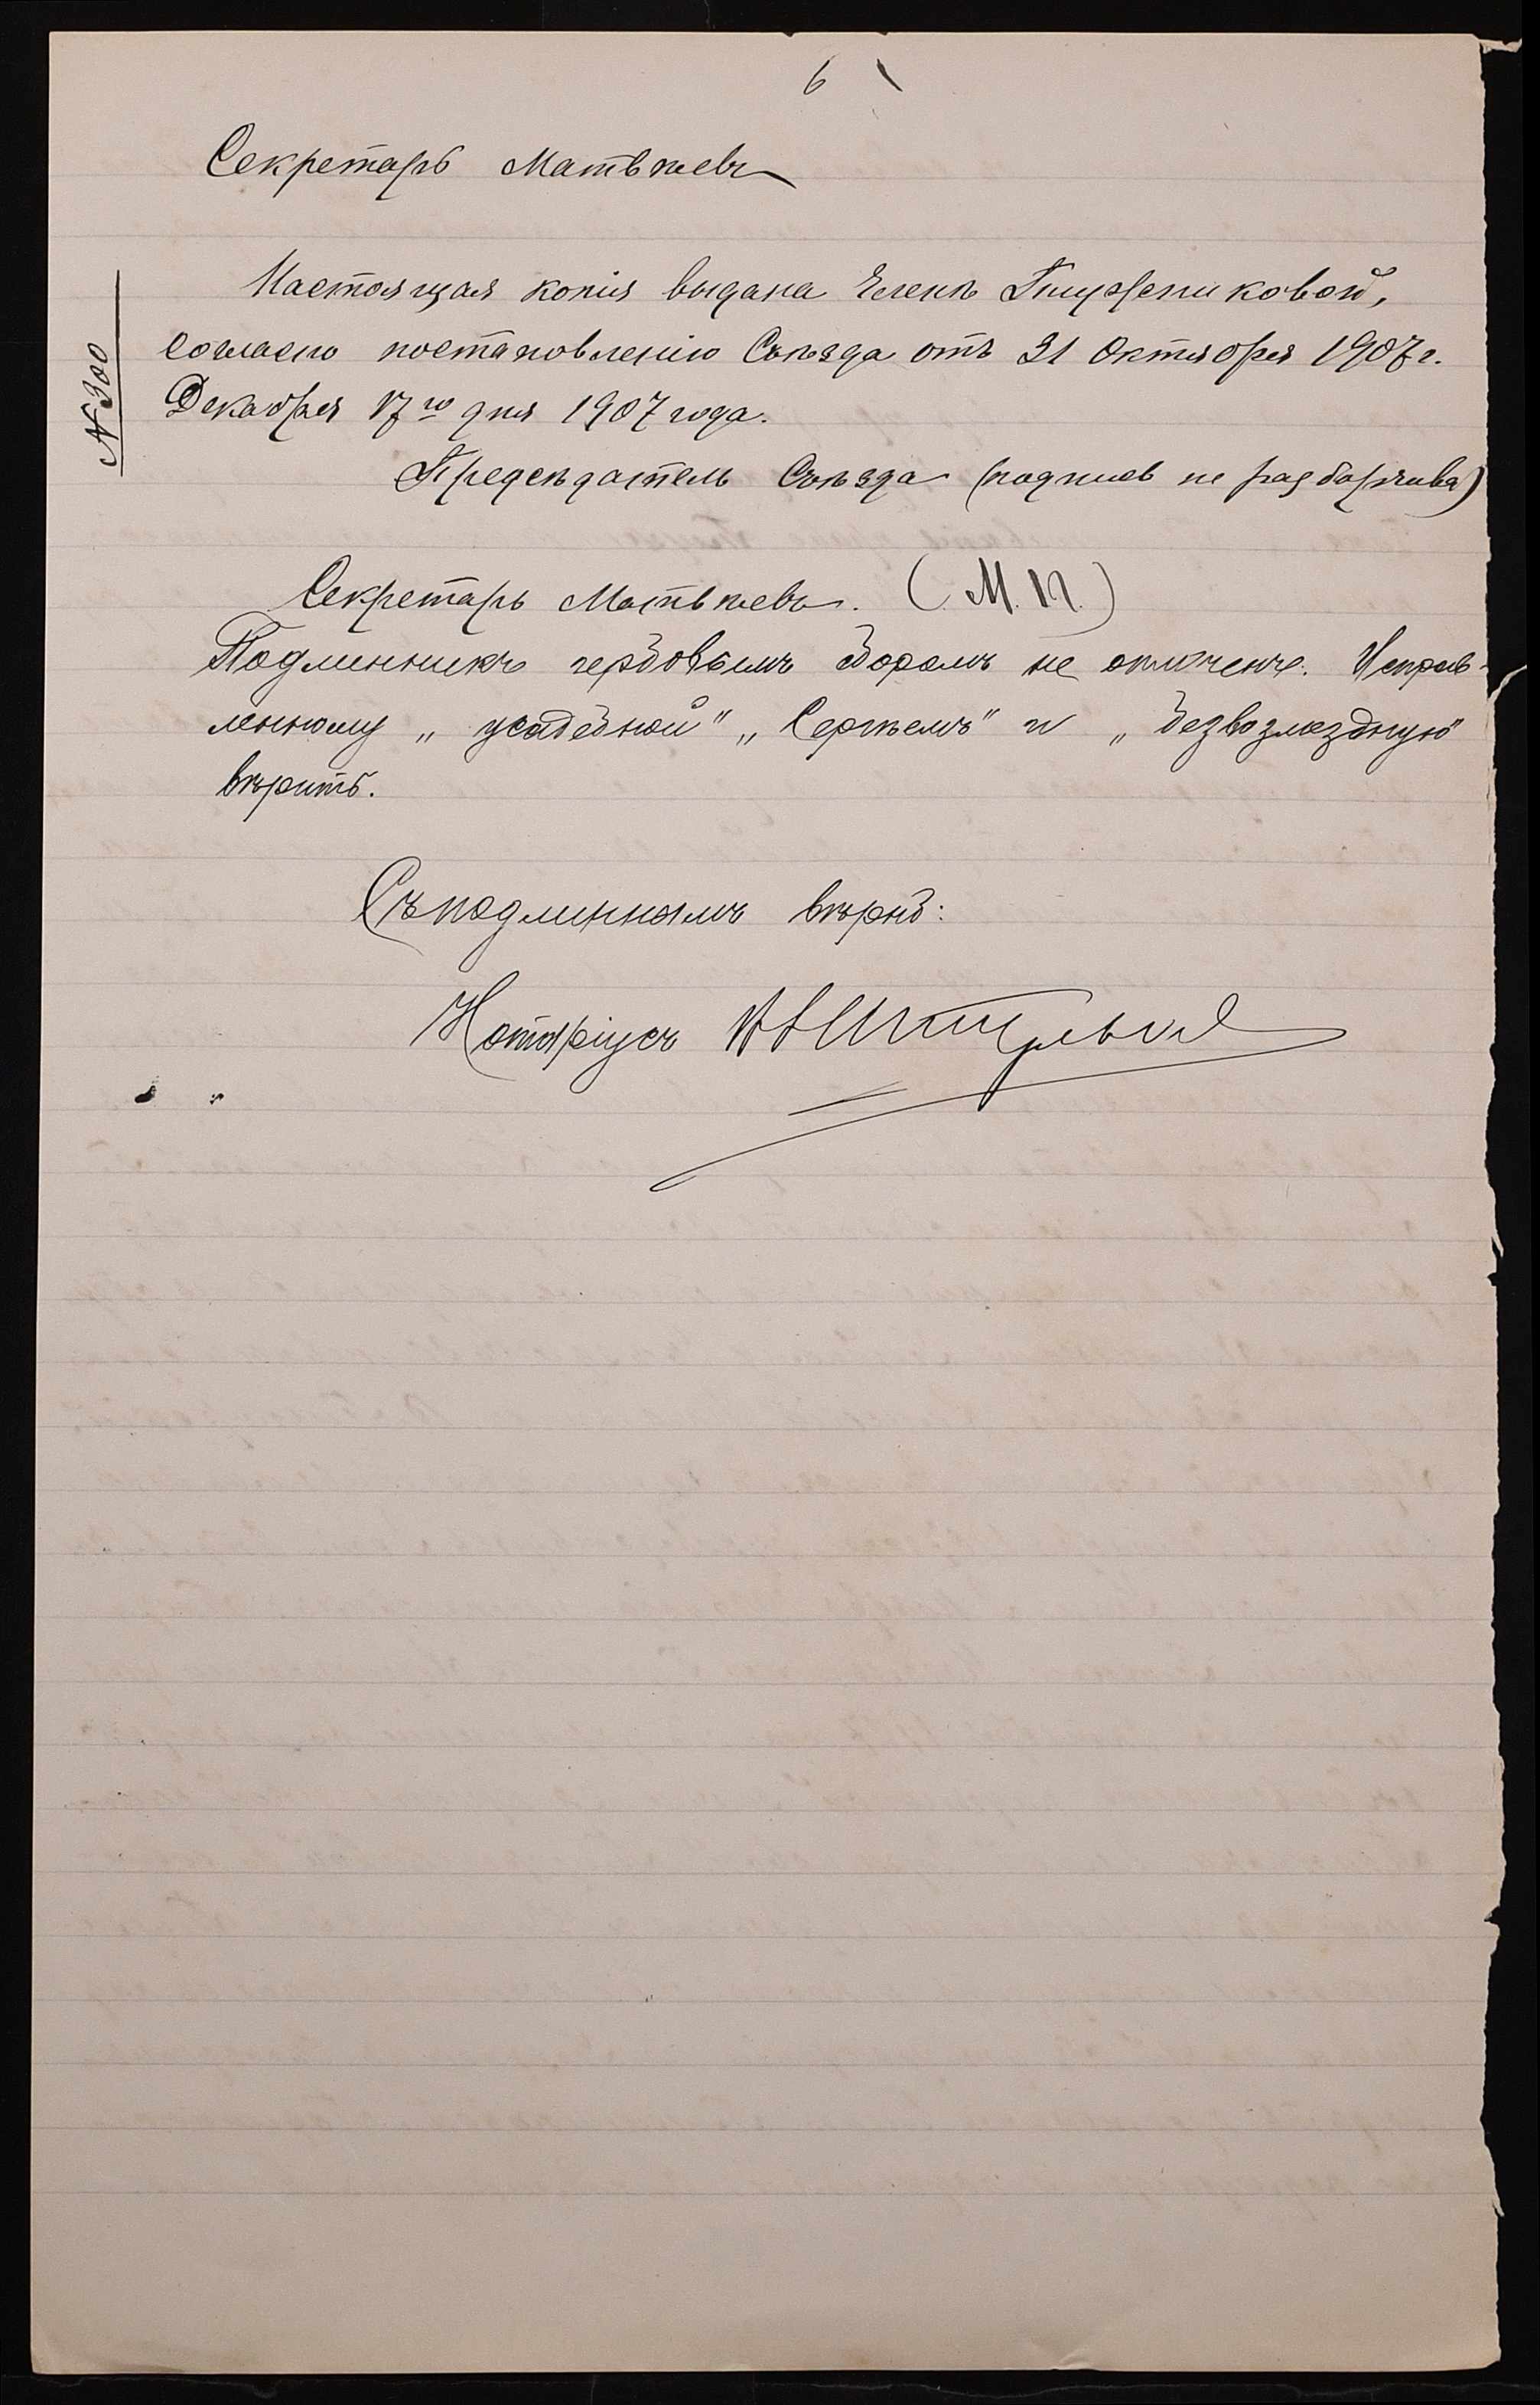 6
Секретарь Матвѣевъ
Настоящая копія выдана Еленѣ Пшуженниковой,
согласно постановленію Съѣзда отъ 31 Октября 1907 г.
№ 300
Декабря 17го дня 1907 года.
Предсѣдатель Съѣзда (подпись не разборчива)
Секретарь Матвѣевъ. (М.П.)
Подлинникъ гербовымъ сборомъ не оплоченъ. Исправ-
ленному „усадебной" „Сергѣемъ" и „безвозмездную"
вѣрить.
Съ подлиннымъ вѣрно:
Нотаріусъ